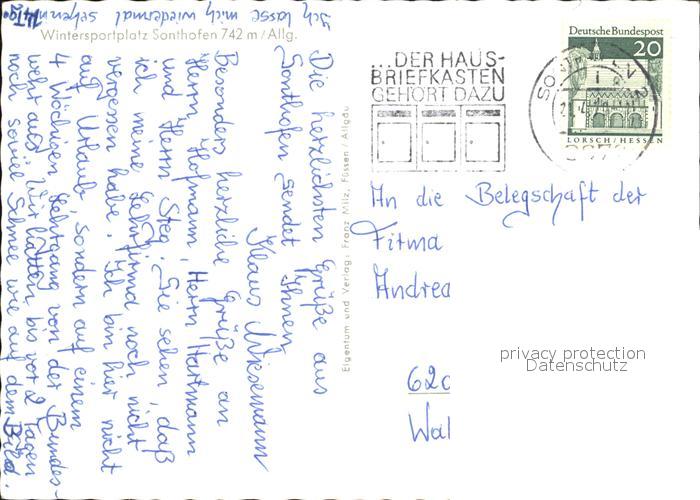 Ich lasse mich wiedermal sehen in
14 Tg.
Wintersportplatz Sonthofen 742 m / Allg.
Die herzlichsten Grüße aus
Sonthofen sendet Ihnen
Klaus Wissemann
Besonders herzliche Grüße an
Herrn Hofmann, Herrn Hartmann
und Herrn Steg. Sie sehen, daß
ich meine Lehrfirma noch nicht
vergessen habe. Ich bin hier nicht
auf Urlaub, sondern auf einem
4 Wöchigen Lehrgang von der Bundes-
wehr aus. Wir hatten bis vor 2 Tagen
noch soviel Schnee wie auf dem Bild.
Eigentum und Verlag: Franz Milz, Füssen / Allgäu
...DER HAUS-
BRIEFKASTEN
GEHÖRT DAZU
Deutsche Bundespost
20
LORSCH / HESSEN
An die Belegschaft der
Firma
Andrea
620
Wal
privacy protection
Datenschutz